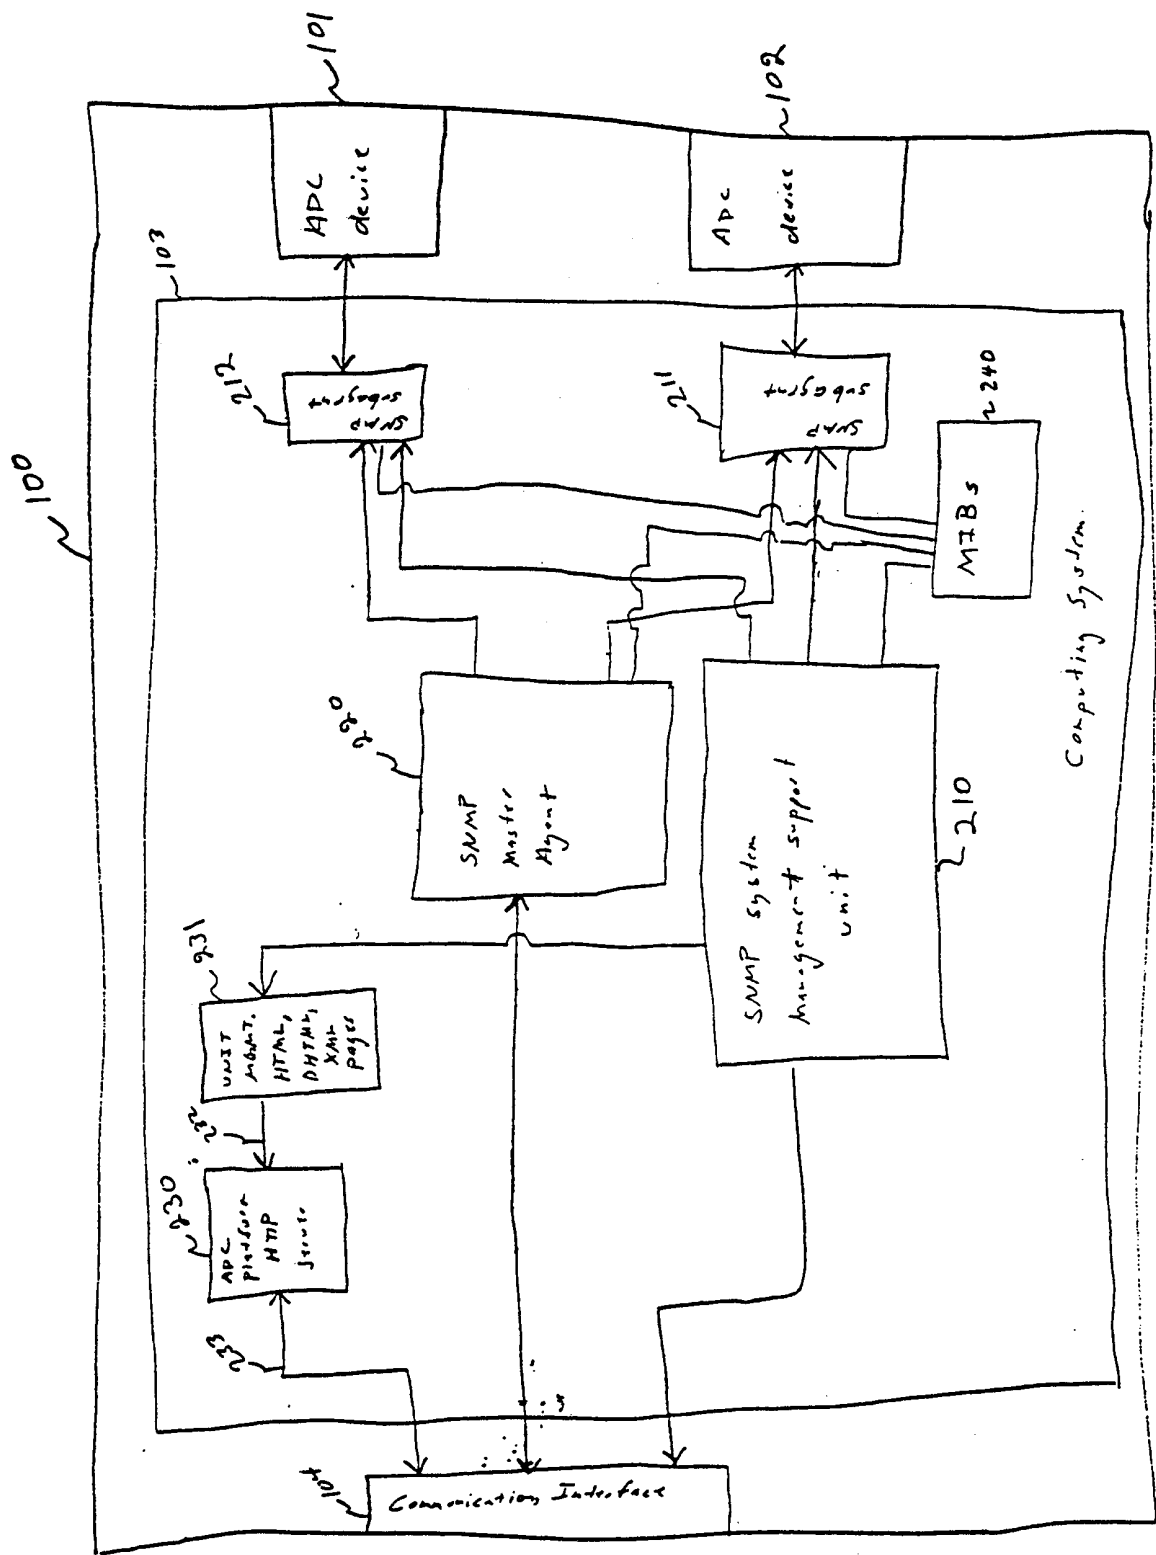 100
101
ADC
device
102
ADC
device
103
212
SNMP
subagent
211
SNMP
subagent
240
MIBs
220
SNMP
Master
Agent
210
SNMP System
Management support
unit
Computing System
231
UNIT
MGMT.
HTML,
DHTML,
XML
pages
232
230
ADC
platform
HTTP
server
233
104
Communication Interface